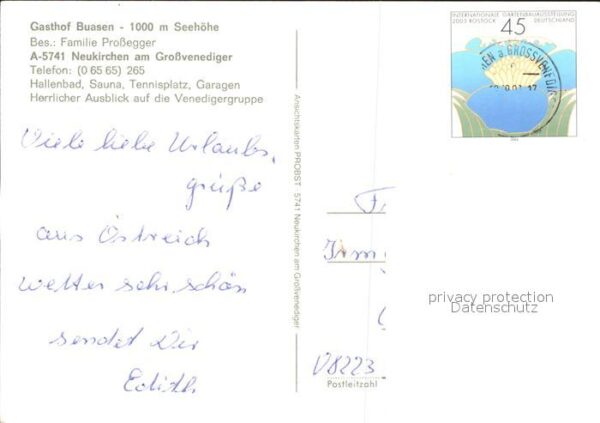 Gasthof Buasen - 1000 m Seehöhe
Bes.: Familie Proßegger
A-5741 Neukirchen am Großvenediger
Telefon: (0 65 65) 265
Hallenbad, Sauna, Tennisplatz, Garagen
Herrlicher Ausblick auf die Venedigergruppe
Viele liebe Urlaubs,
grüße
aus Östreich
wetter sehr schön
sendet Dir
Edith
Ansichtskarten PROBST · 5741 Neukirchen am Großvenediger
INTERNATIONALE GARTENBAUAUSSTELLUNG
2003 ROSTOCK DEUTSCHLAND
45
EN a. GROSSVENEDI
F
Irm
privacy protection
Datenschutz
V8223
Postleitzahl